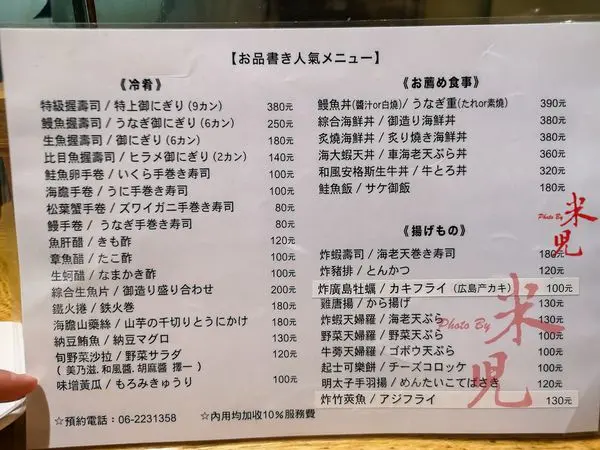 【お品書き人氣メニュー】
《冷肴》
特級握壽司 / 特上御にぎり (9カン) 380元
鰻魚握壽司 / うなぎ御にぎり (6カン) 250元
生魚握壽司 / 御にぎり (6カン) 180元
比目魚握壽司 / ヒラメ御にぎり (2カン) 140元
鮭魚卵手卷 / いくら手巻き寿司 100元
海膽手卷 / うに手巻き寿司 100元
松葉蟹手卷 / ズワイガニ手巻き寿司 80元
鰻手卷 / うなぎ手巻き寿司 80元
魚肝醋 / きも酢 120元
章魚醋 / たこ酢 100元
生蚵醋 / なまかき酢 100元
綜合生魚片 / 御造り盛り合わせ 200元
鐵火捲 / 鉄火巻 180元
海膽山藥絲 / 山芋の千切りとうにかけ 180元
納豆鮪魚 / 納豆マグロ 130元
旬野菜沙拉 / 野菜サラダ 120元
( 美乃滋、和風醬、胡麻醬 擇一 )
味增黃瓜 / もろみきゅうり 100元
☆預約電話：06-2231358 ☆內用均加收10%服務費
《お薦め食事》
鰻魚丼(醬汁or白燒) / うなぎ重(たれor素焼) 390元
綜合海鮮丼 / 御造り海鮮丼 380元
炙燒海鮮丼 / 炙り焼き海鮮丼 380元
海大蝦天丼 / 車海老天ぷら丼 360元
和風安格斯生牛丼 / 牛とろ丼 320元
鮭魚飯 / サケ御飯 180元
《揚げもの》
炸蝦壽司 / 海老天巻き寿司 180元
炸豬排 / とんかつ 120元
炸廣島牡蠣 / カキフライ (広島产カキ) 100元
雞唐揚 / から揚げ 130元
炸蝦天婦羅 / 海老天ぷら 130元
野菜天婦羅 / 野菜天ぷら 100元
牛蒡天婦羅 / ゴボウ天ぷら 100元
起士可樂餅 / チーズコロッケ 100元
明太子手羽揚 / めんたいこてばさき 120元
炸竹莢魚 / アジフライ 130元
Photo By 米兒
Photo By 米兒